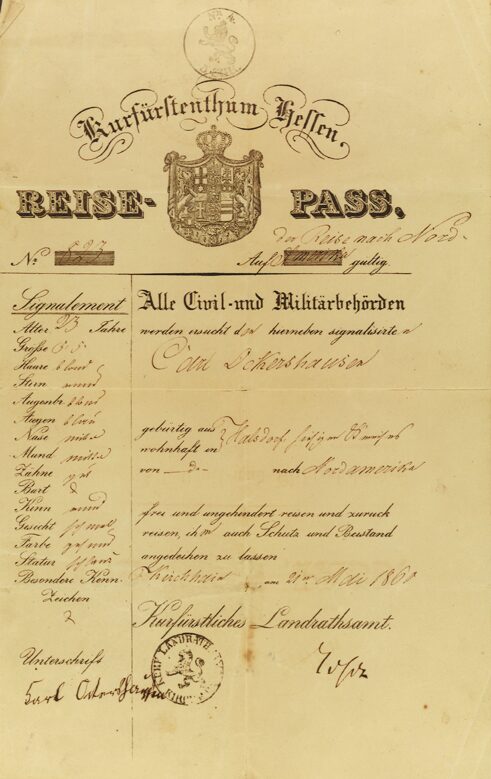 Kurfürstenthum Hessen,
REISE-PASS.
der Reise nach Nord-
Nº 823 Auf Amerika gültig.
Signalement
Alter 23 Jahre
Größe
Haare blond
Stirn rund
Augenbr. blond
Augen blau
Nase
Mund
Zähne gut
Bart
Kinn rund
Gesicht schmal
Farbe gesund
Statur schlank
Besondere Kenn-
Zeichen
Unterschrift
Alle Civil- und Militärbehörden
werden ersucht den hierneben signalisirten
Carl Ockershausen
gebürtig aus Halsdorf
wohnhaft in
von da nach Nordamerika
frei und ungehindert reisen und zurück
reisen, ihm auch Schutz und Beistand
angedeihen zu lassen
Kirchhain am 21ten Mai 1860
Kurfürstliches Landrathsamt.
LANDRATH
Karl